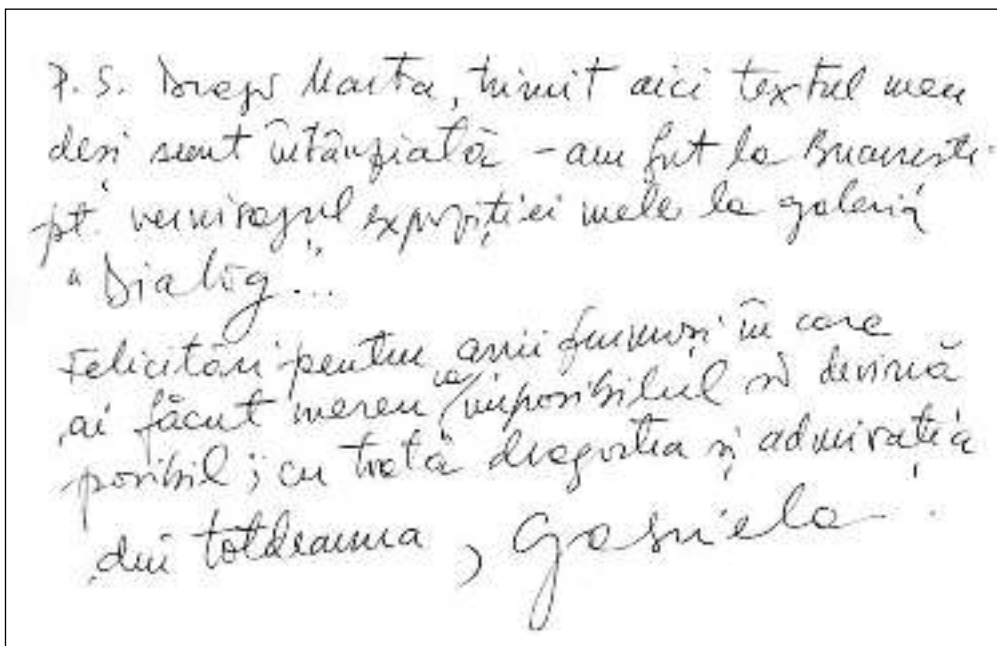 P.S. Dragă Marta, trimit aici textul meu
deși sunt întârziată - am fost la București
pt. vernisajul expoziției mele la galeria
"Dialog...
Felicitări pentru anii frumoși în care
ai făcut mereu ca imposibilul să devină
posibil; cu toată dragostea și admirația
din totdeauna, Gabriela.